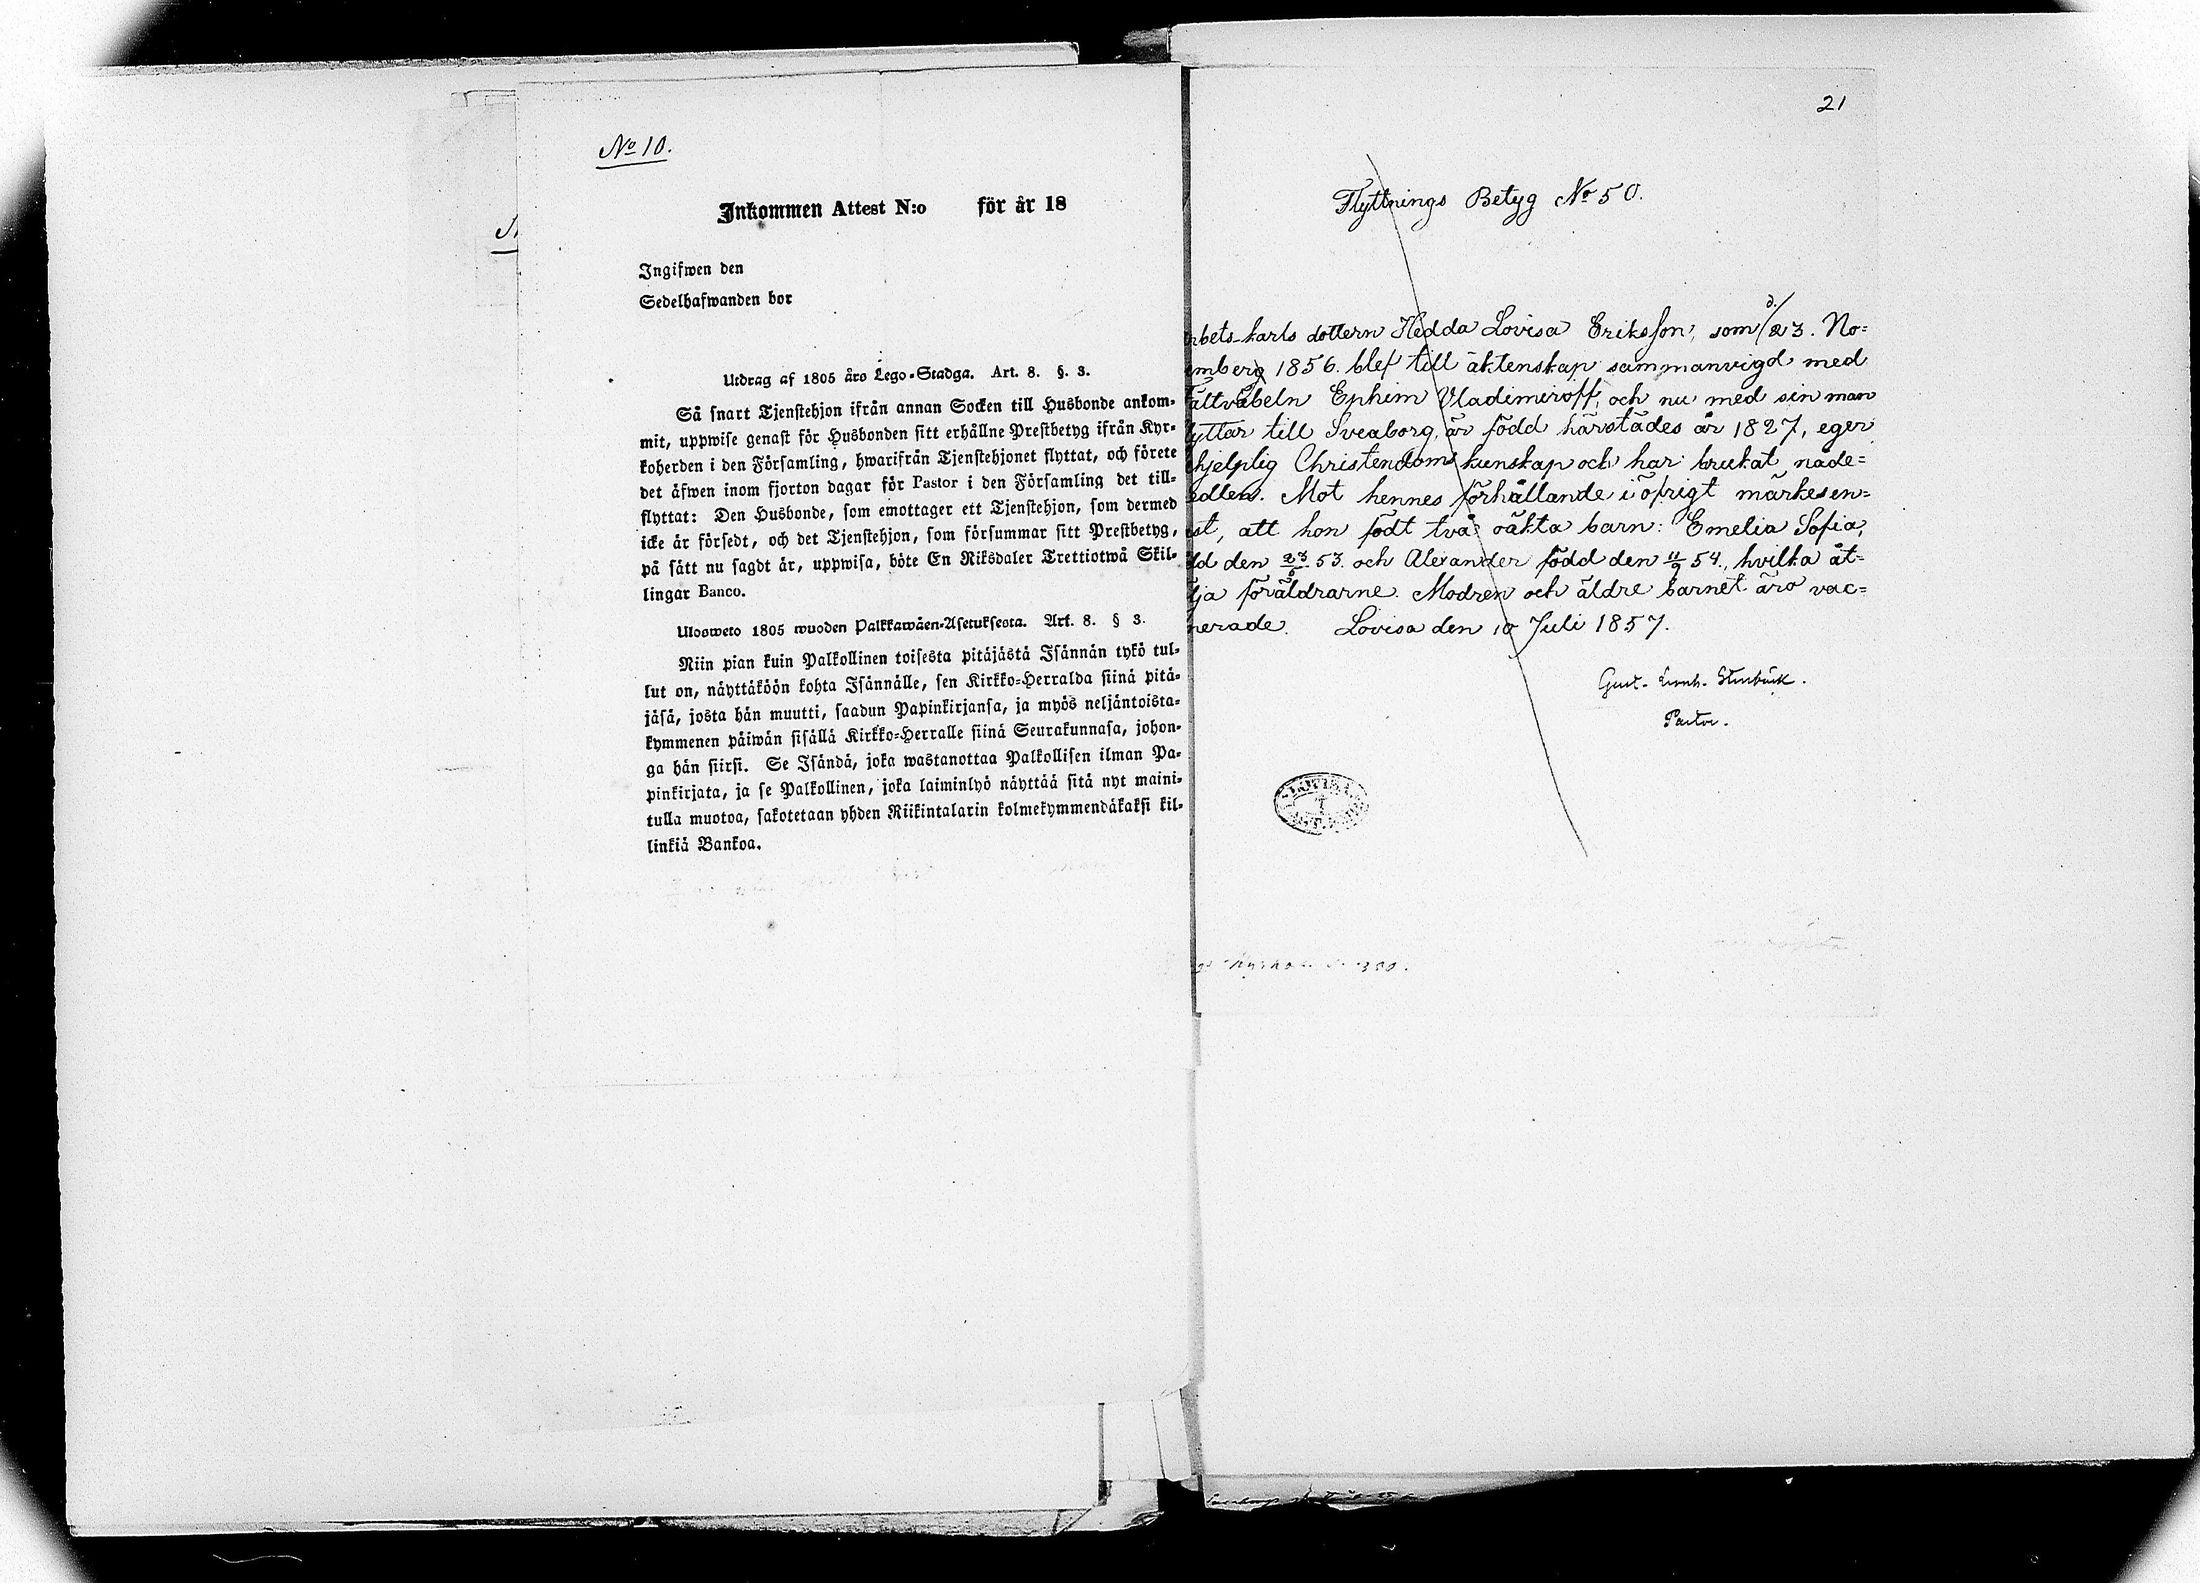 No 10.
Inkommen Attest N:o för år 18
Ingifwen den
Sedelhafwanden bor
Utdrag af 1805 års Lego-Stadga. Art. 8. §. 3.
Så snart Tjenstehjon ifrån annan Socken till Husbonde ankom-
mit, uppwise genast för Husbonden sitt erhållne Prestbetyg ifrån Kyr-
koherden i den Församling, hwarifrån Tjenstehjonet flyttat, och förete
det äfwen inom fjorton dagar för Pastor i den Församling det till-
flyttat: Den Husbonde, som emottager ett Tjenstehjon, som dermed
icke är försedt, och det Tjenstehjon, som försummar sitt Prestbetyg,
på sätt nu sagdt är, uppwisa, böte En Riksdaler Trettiotwå Skil-
lingar Banco.
Ulosweto 1805 wuoden Palkkawäen-Asetuksesta. Art. 8. § 3.
Niin pian kuin Palkollinen toisesta pitäjästä Isännän tykö tul-
lut on, näyttäköön kohta Isännälle, sen Kirkko-Herralda siinä pitä-
jäsä, josta hän muutti, saadun Papinkirjansa, ja myös neljäntoista-
kymmenen päiwän sisällä Kirkko-Herralle siinä Seurakunnasa, johon-
ga hän siirsi. Se Isändä, joka wastanottaa Palkollisen ilman Pa-
pinkirjata, ja se Palkollinen, joka laiminlyö näyttää sitä nyt maini-
tulla muotoa, sakotetaan yhden Riikintalarin kolmekymmendäkaksi kil-
linkiä Bankoa.
21
Flyttnings Betyg No 50.
rbets-karls dottern Hedda Lovisa Eriksson, som d. 23. No=
emberg 1856. blef till äktenskap sammanvigd med
ältväbeln Ephim Vladimiroff, och nu med sin man
lyttar till Sveaborg, är född härstädes år 1827, eger
hjelplig Christendoms kunskap och har brukat nåde=
edlen. Mot hennes förhållande i öfrigt märkes en=
st, att hon födt två oäkta barn: Emelia Sofia,
dd den 23/6 53. och Alexander född den 11/9 54., hvilka åt=
lja föräldrarne. Modren och äldre barnet äro vac=
nerade. Lovisa den 10 Juli 1857.
Gust.
Pastor.